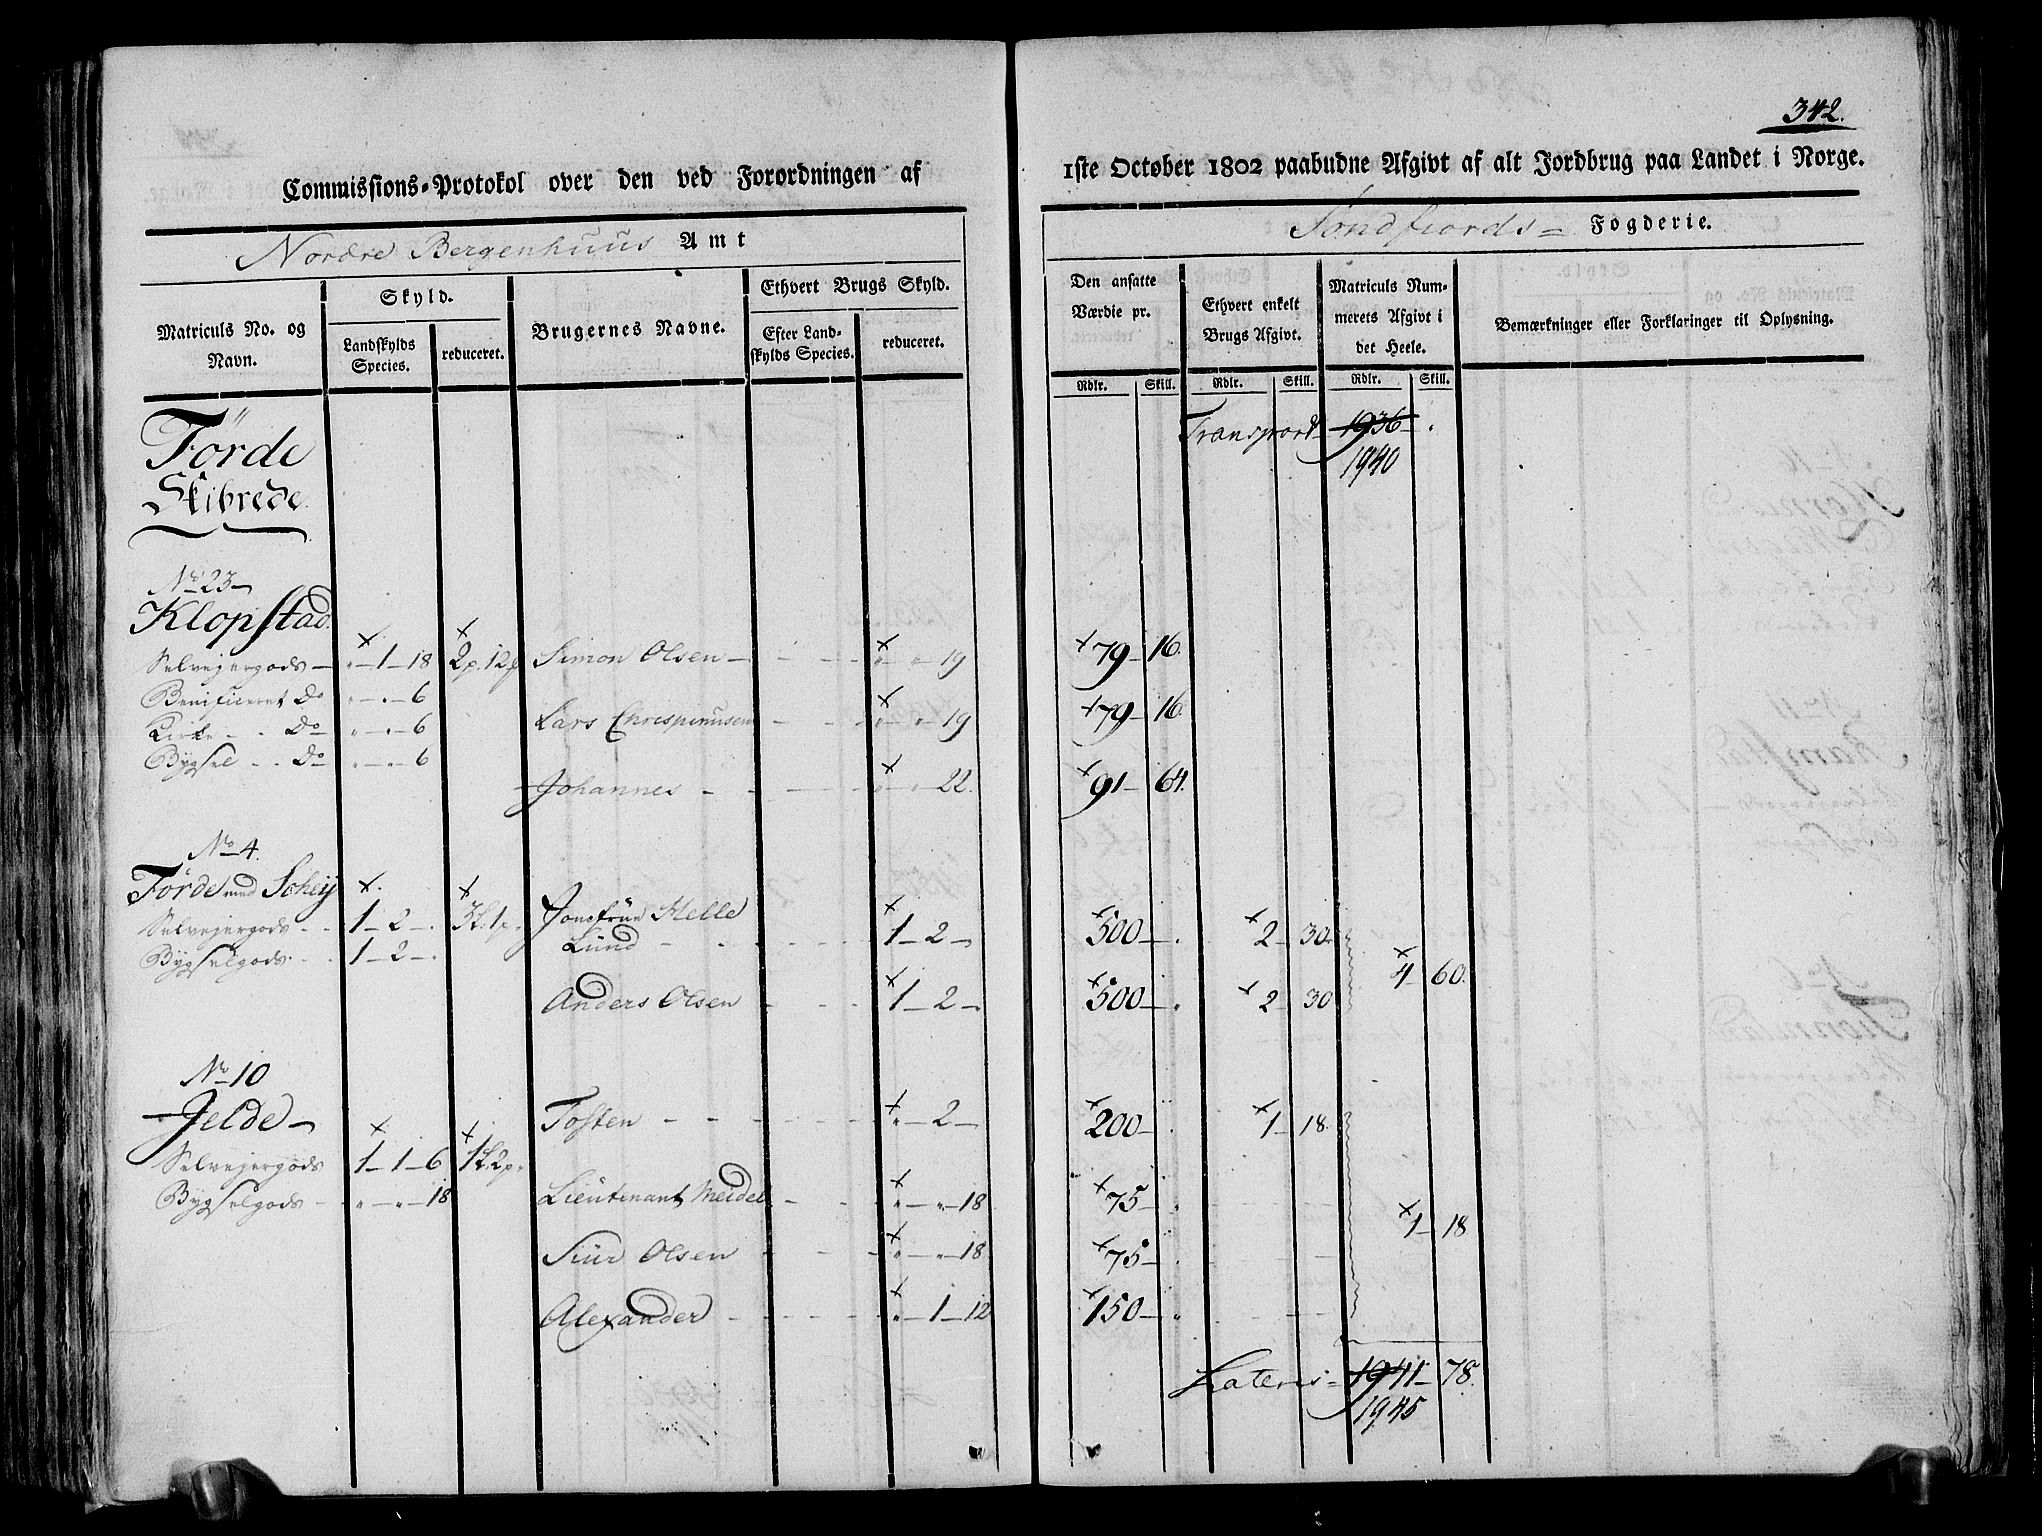 342.
Commissions=Protokol over den ved Forordningen af
1ste October 1802 paabudne Afgivt af alt Jordbrug paa Landet i Norge.
Nordre Bergenhuus Amt
Søndfiords= Fogderie.
Matriculs No. og Navn.
Skyld.
Landskylds Species.
reduceret.
Brugernes Navne.
Ethvert Brugs Skyld.
Efter Landskylds Species.
reduceret.
Den ansatte Værdie pr.
Ethvert enkelt Brugs Afgivt.
Matriculs Nummerets Afgivt i det Heele.
Bemærkninger eller Forklaringer til Oplysning.
Rdlr. Skill. Rdlr. Skill. Rdlr. Skill.
Förde
Skibrede
Transport 1936
1940
No 23
Klopstad
Selvejergods " 1 18 2p. 12 Simon Olsen " " 19 79 16
Benificeret Do " " 6
Lars Chrespinusen " " 19 79 16
Kirke Do " " 6
Bygsel Do " " 6
Johannes " " 22 91 64
No 4
Förde med Scheij
Selvejergods 1 2 " 3L. 1p. Jomfrue Helle
Lund 1 2 500 2 30
Bygselgods 1 2 "
4 60
Anders Olsen 1 2 500 2 30
No 10
Jelde
Tosten " 2 200 1 18
Selvejergods 1 1 6 1L. 2p.
Bygselgods " " 18 Lieutenant Meidel " " 18 75
1 18
Siur Olsen " " 18 75
Alexander " 1 12 150
Lateris 1941 78
1945